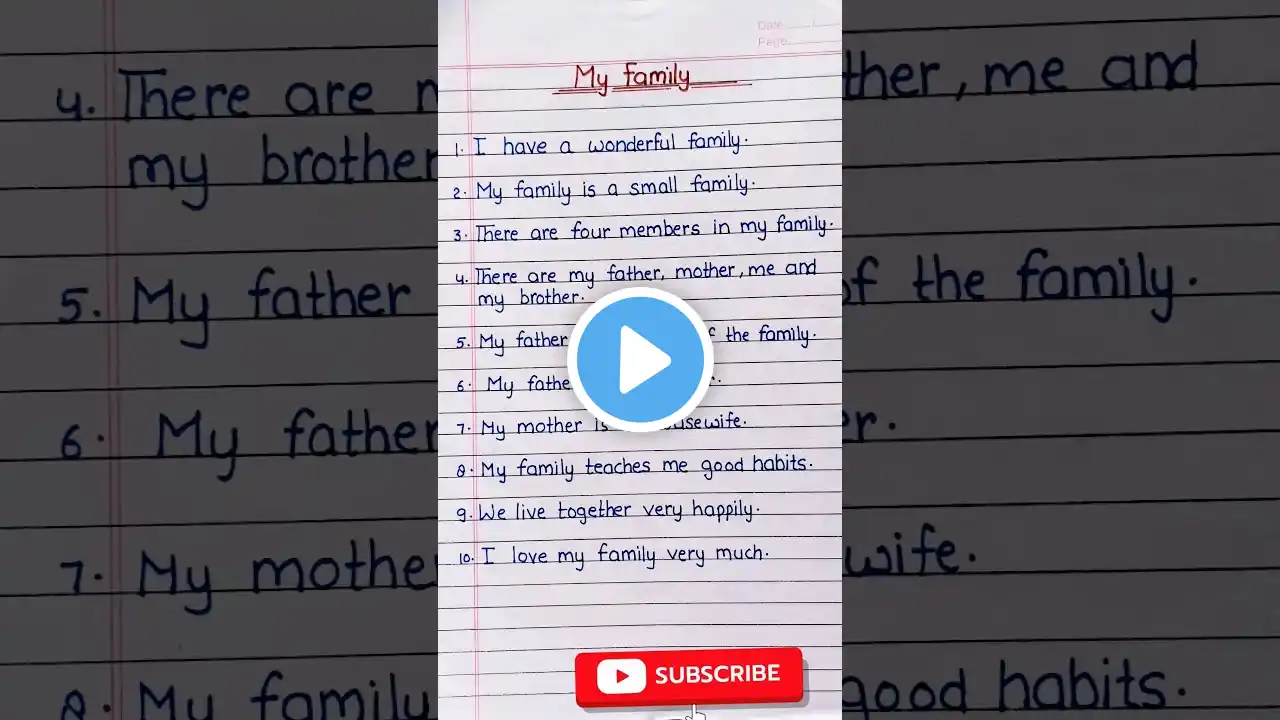 Date
Page
My family
1. I have a wonderful family.
2. My family is a small family.
3. There are four members in my family.
4. There are my father, mother, me and
my brother.
5. My father of the family.
6. My
7. My mother is housewife.
8. My family teaches me good habits.
9. We live together very happily.
10. I love my family very much.
SUBSCRIBE
4. There are ther, me and
my brother
5. My father of the family.
6. My father
7. My wife.
8. My family good habits.